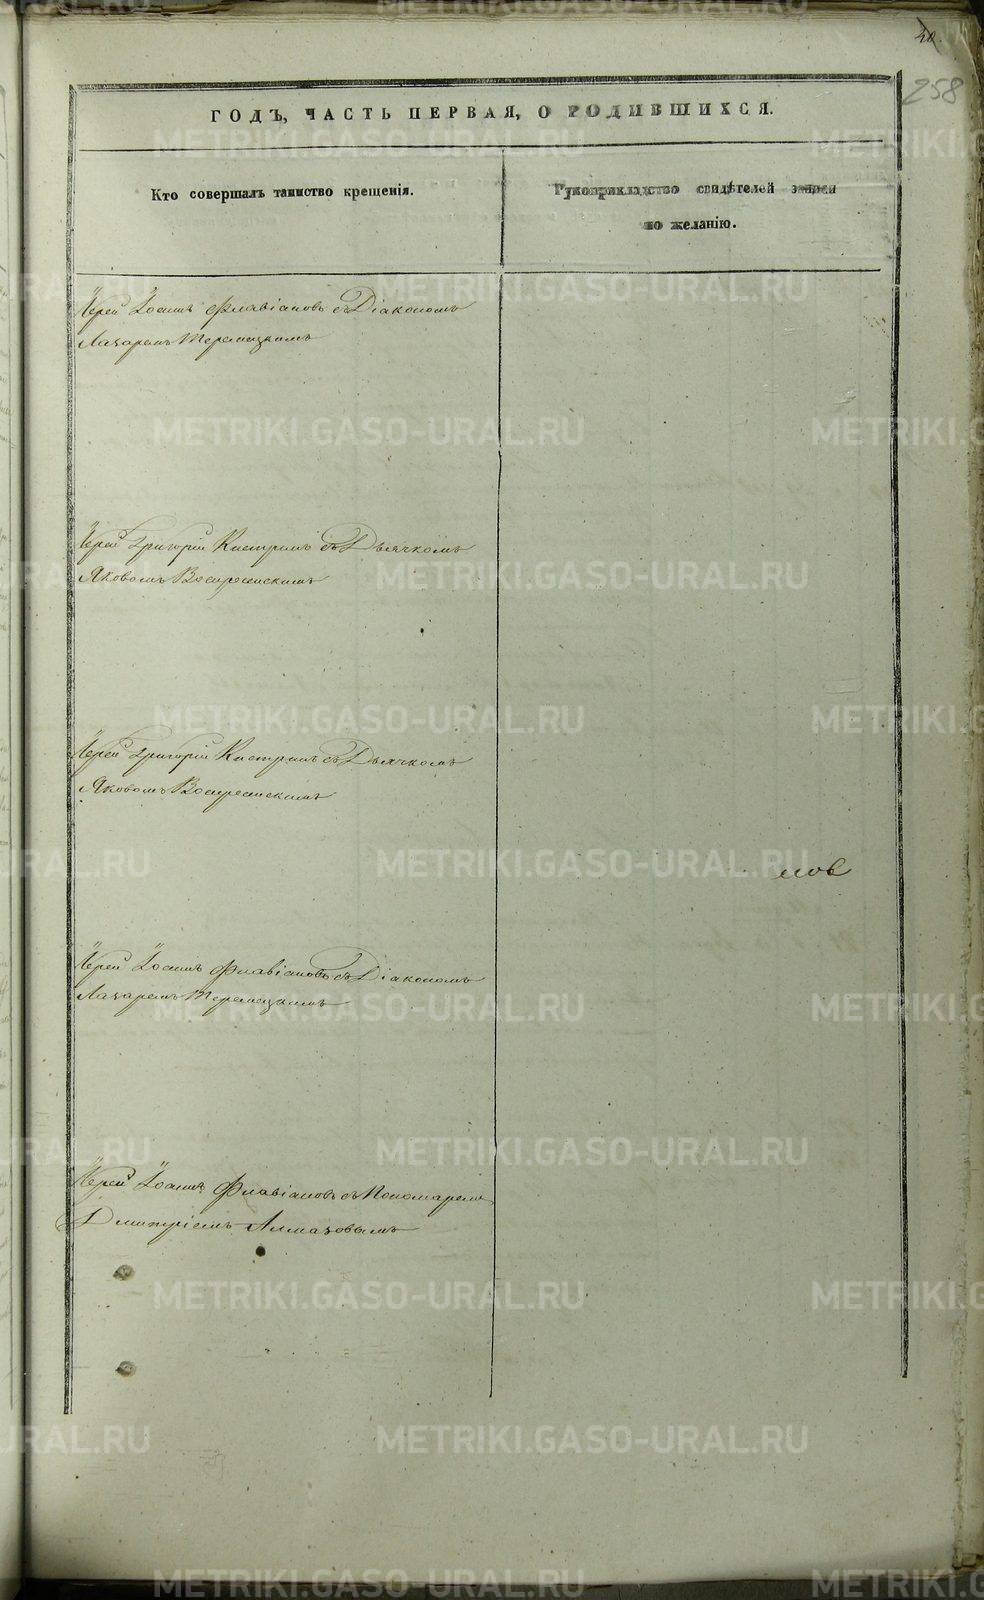 20.
258
ГОДЪ, ЧАСТЬ ПЕРВАЯ, О РОДИВШИХСЯ.
Кто совершалъ таинство крещенія.
Рукоприкладство свидѣтелей записи
по желанію.
Іерей Іоаннъ Флавіановъ съ Діакономъ
Лазаремъ
Іерей Григорій съ Дьячкомъ
Яковомъ Воскресенскимъ
Іерей Григорій съ Дьячкомъ
Яковомъ Воскресенскимъ
мов
Іерей Іоаннъ Флавіановъ съ Діакономъ
Лазаремъ
Іерей Іоаннъ Флавіановъ съ Пономаремъ
Дмитріемъ Алмазовымъ
METRIKI.GASO-URAL.RU